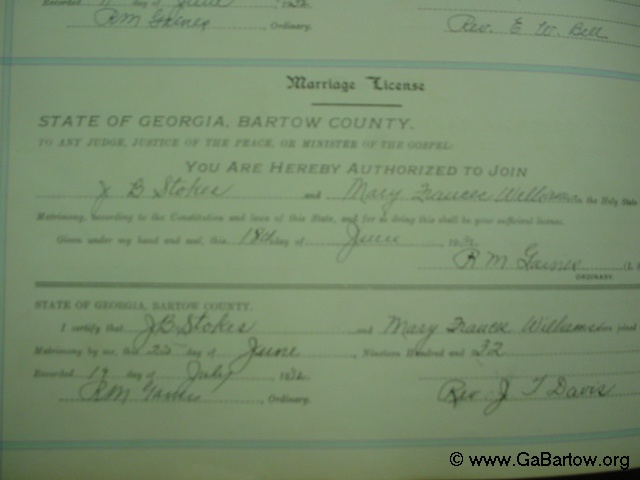 Recorded June 1932
RM Gaines, Ordinary. Rev. E. W. Bell
Marriage License
STATE OF GEORGIA, BARTOW COUNTY.
TO ANY JUDGE, JUSTICE OF THE PEACE, OR MINISTER OF THE GOSPEL:
YOU ARE HEREBY AUTHORIZED TO JOIN
J B Stokes and Mary Frances Williams in the Holy State
Matrimony, according to the Constitution and laws of this State, and for so doing this shall be your sufficient license.
Given under my hand and seal, this 18th day of June 1932
R M Gaines (L
ORDINARY.
STATE OF GEORGIA, BARTOW COUNTY.
I certify that J B Stokes and Mary Frances Williams were joined
Matrimony by me, this day of June, Nineteen Hundred and 32
Recorded 19 day of July, 1932
RM Gaines, Ordinary. Rev J T Davis
© www.GaBartow.org